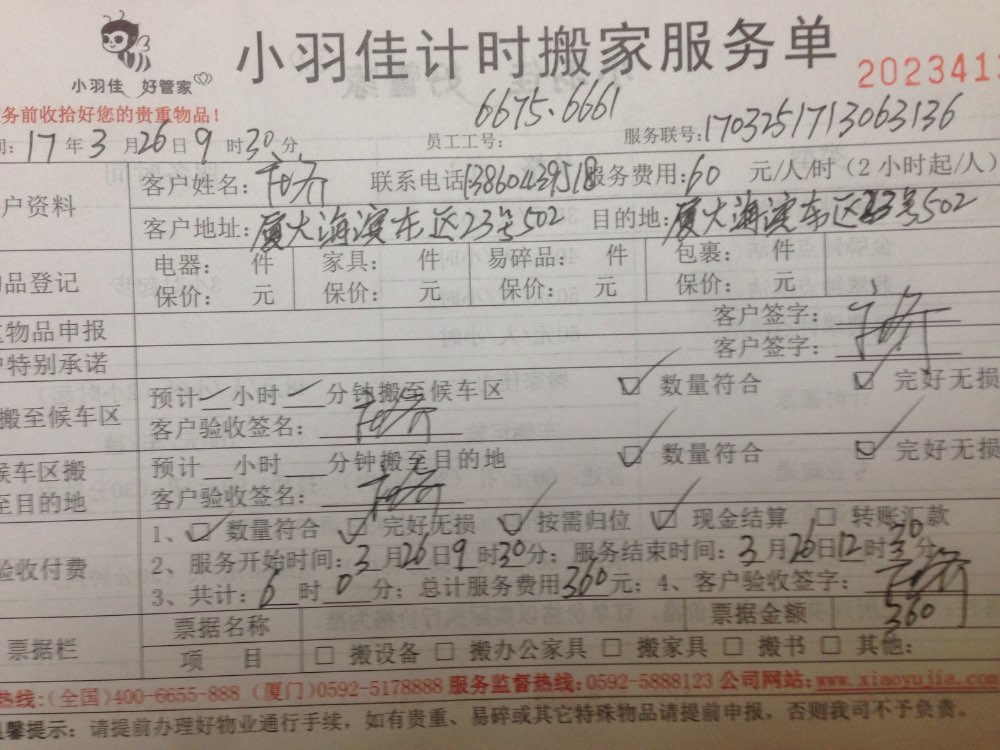 小羽佳计时搬家服务单
小羽佳 好管家
2023411
务前收拾好您的贵重物品！
6675.6661
17年3月26日9时30分 员工工号： 服务联号：1703251713063136
户资料 客户姓名： 联系电话 服务费用：60 元/人/时（2小时起/人）
客户地址：厦大海滨东区23号502 目的地：厦大海滨东区23号502
品登记 电器： 件 家具： 件 易碎品： 件 包裹： 件
保价： 元 保价： 元 保价： 元 保价： 元
物品申报 客户签字：
特别承诺 客户签字：
搬至候车区 预计 小时 分钟搬至候车区 数量符合 完好无损
客户验收签名：
候车区搬至目的地 预计 小时 分钟搬至目的地 数量符合 完好无损
客户验收签名：
验收付费 1、数量符合 完好无损 按需归位 现金结算 转账汇款
2、服务开始时间：3月26日9时30分；服务结束时间：3月26日12时30分
3、共计：6时0分；总计服务费用360元；4、客户验收签字：
票据栏 票据名称 票据金额 360
项 目 搬设备 搬办公家具 搬家具 搬书 其他：
热线：(全国)400-6655-888 (厦门)0592-5178888 服务监督热线：0592-5888123 公司网站：www.xiaoyujia.com
温馨提示：请提前办理好物业通行手续，如有贵重、易碎或其它特殊物品请提前申报，否则我司不予负责。